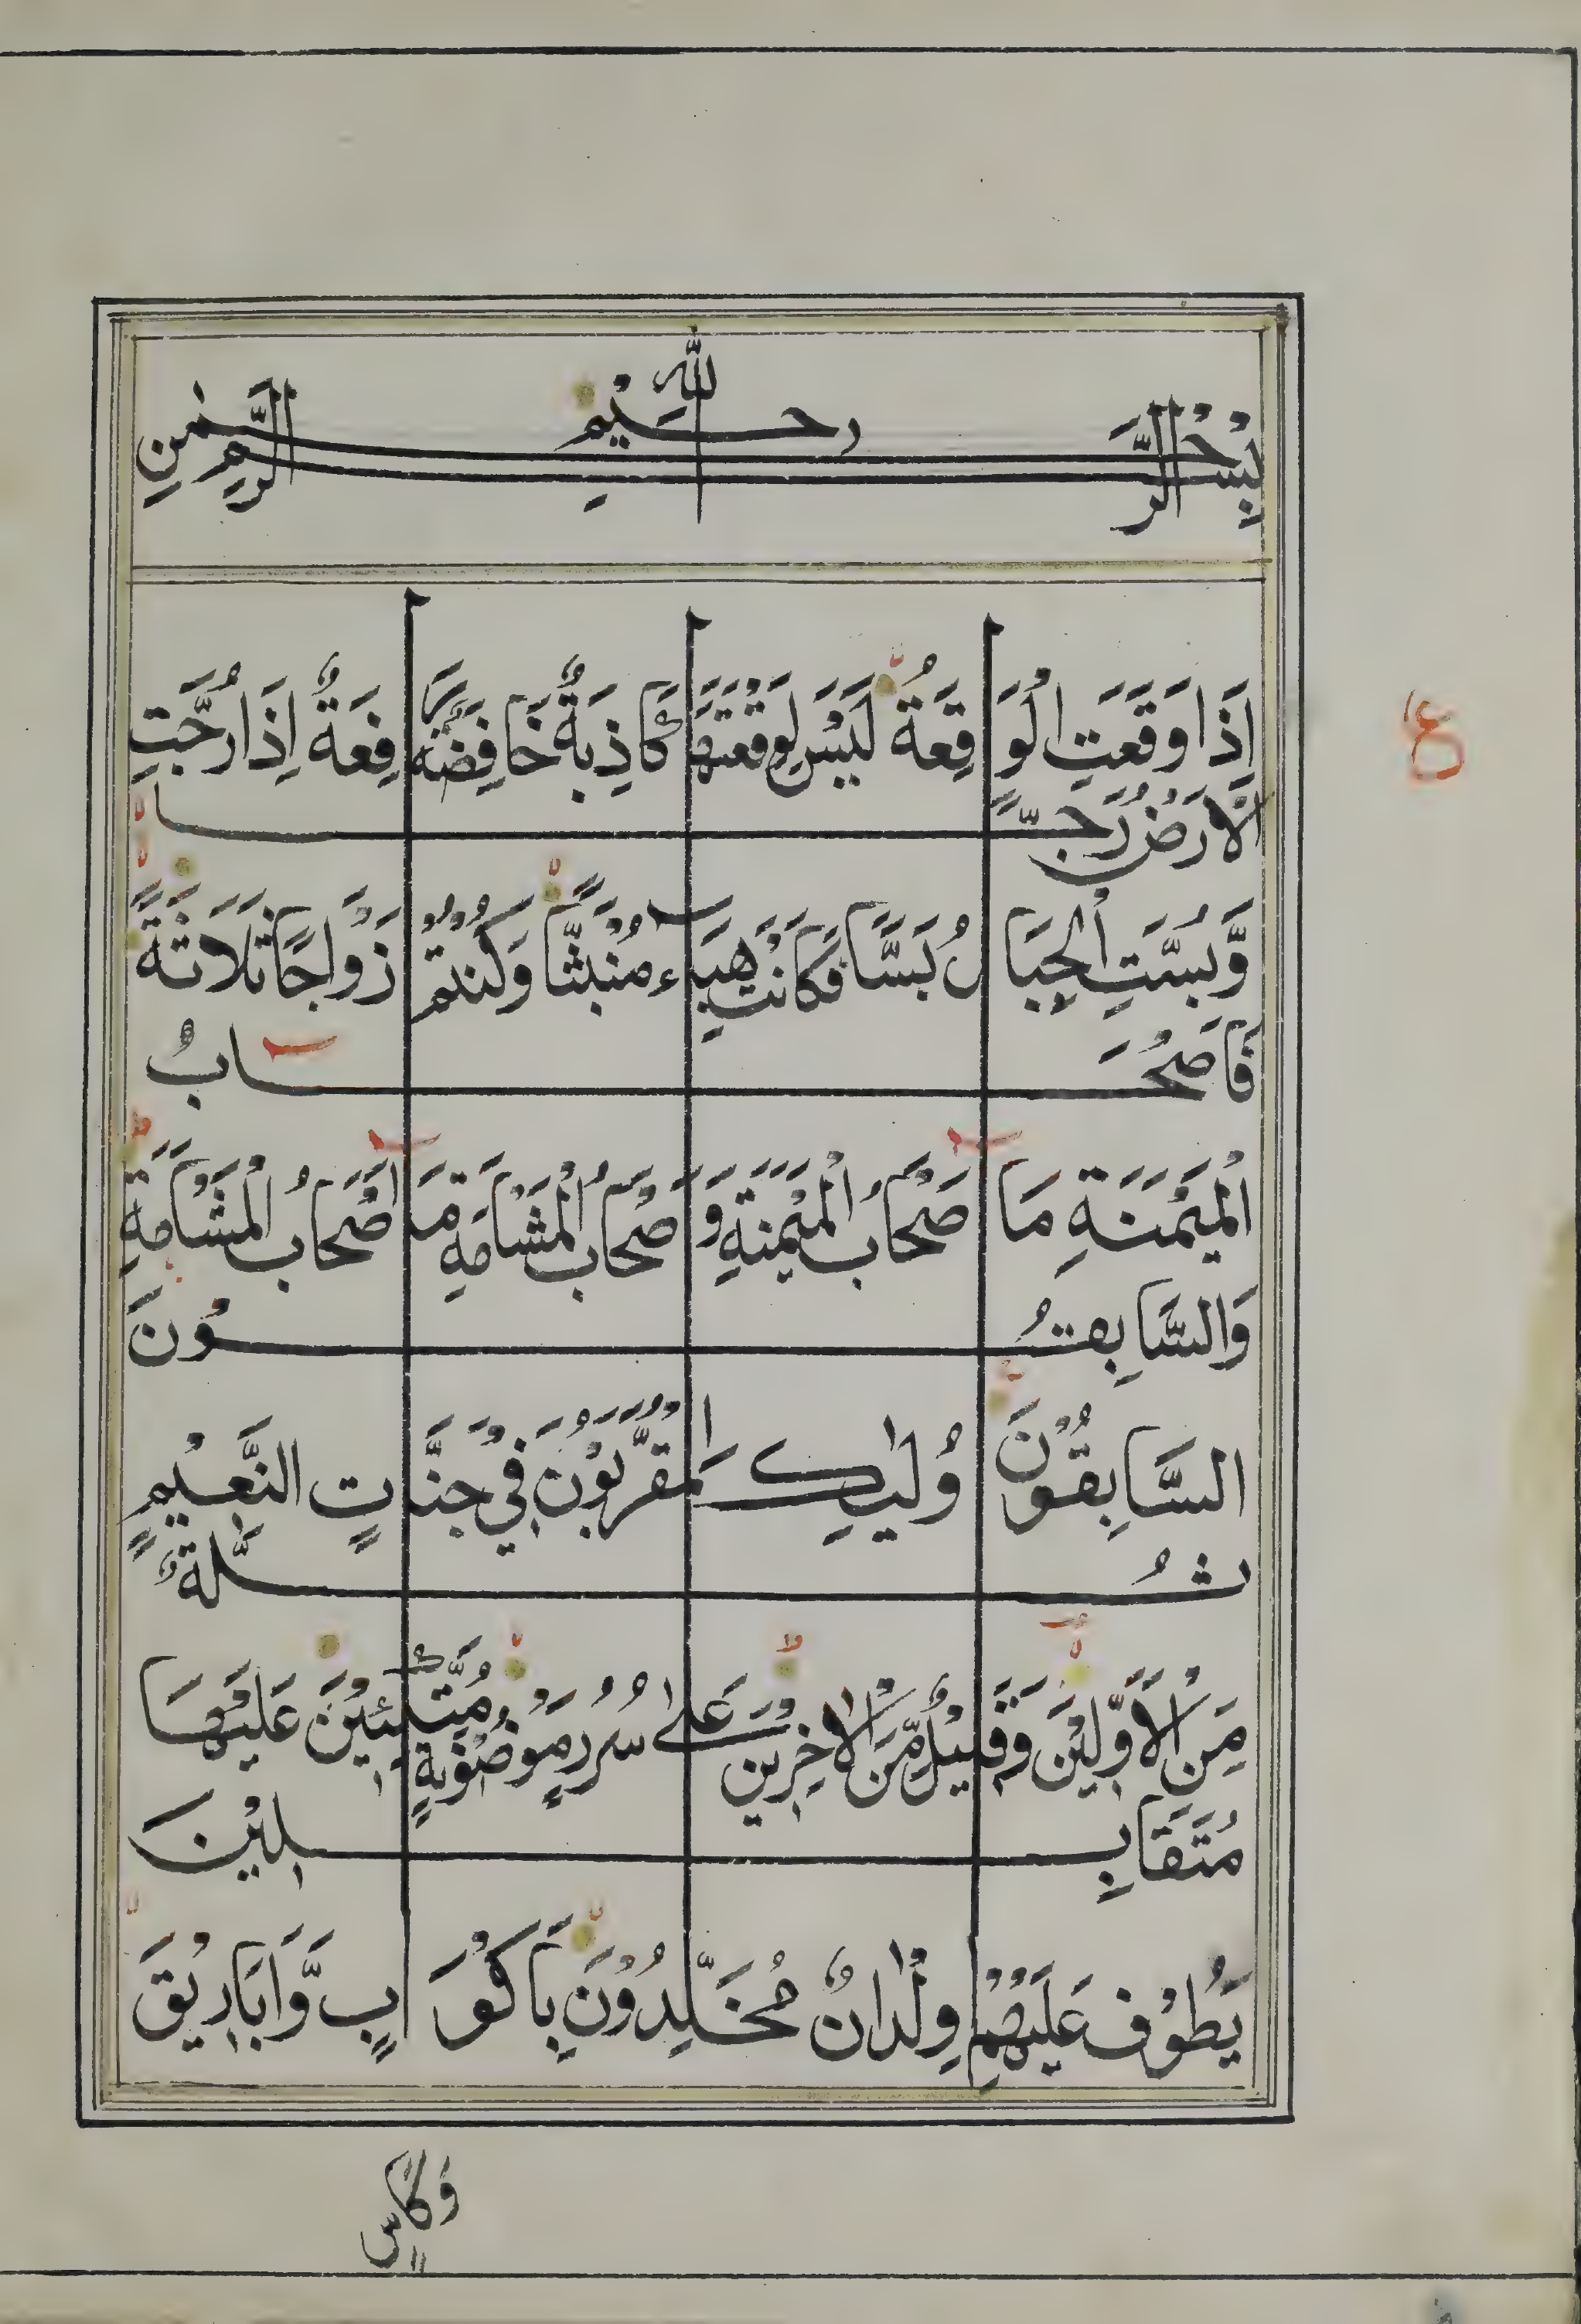 بِسْمِ اللهِ الرَّحْمٰنِ الرَّحِيْمِ
ع
اِذَا وَقَعَتِ الْوَاقِعَةُ لَيْسَ لِوَقْعَتِهَا كَاذِبَةٌ خَافِضَةٌ رَّافِعَةٌ اِذَا رُجَّتِ
الْاَرْضُ رَجًّا
وَّبُسَّتِ الْجِبَالُ بَسًّا فَكَانَتْ هَبَاءً مُنْبَثًّا وَكُنْتُمْ اَزْوَاجًا ثَلَاثَةً
فَاَصْحَابُ
الْمَيْمَنَةِ مَا اَصْحَابُ الْمَيْمَنَةِ وَاَصْحَابُ الْمَشْاَمَةِ مَا اَصْحَابُ الْمَشْاَمَةِ
وَالسَّابِقُونَ
السَّابِقُوْنَ اُولٰئِكَ الْمُقَرَّبُوْنَ فِيْ جَنَّاتِ النَّعِيْمِ
ثُلَّةٌ
مِنَ الْاَوَّلِيْنَ وَقَلِيْلٌ مِّنَ الْاٰخِرِيْنَ عَلٰى سُرُرٍ مَوْضُوْنَةٍ مُتَّكِئِيْنَ عَلَيْهَا
مُتَقَابِلِيْنَ
يَطُوْفُ عَلَيْهِمْ وِلْدَانٌ مُخَلَّدُوْنَ بِاَكْوَابٍ وَّاَبَارِيْقَ
وَكَاْسٍ